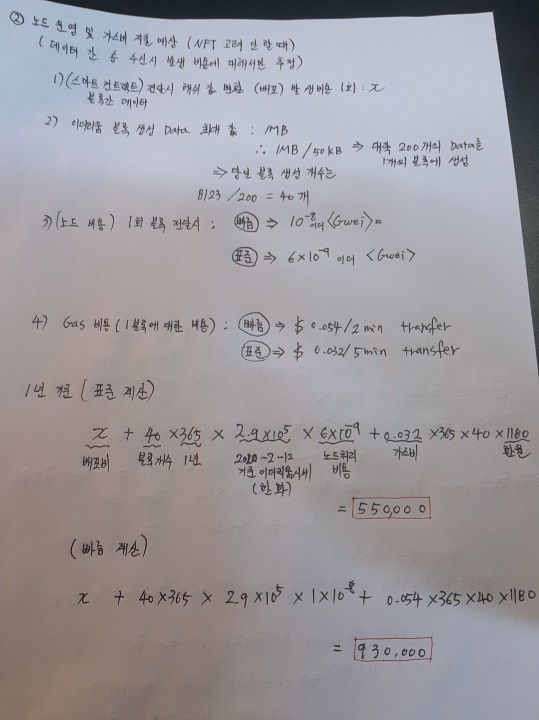 ② 노드 운영 및 가스비 지출 예상 (NFT 고려 안 할 때)
( 데이터 간 송 수신시 발생 비용에 대해서만 추정)
1) (스마트 컨트랙트) 전달시 해쉬 값 변환 (배포) 발생비용 1회 : x
블록간 데이터
2) 이더리움 블록 생성 Data 최대 값 : 1MB
∴ 1MB / 50KB ⇒ 대략 200개의 Data를
1개의 블록에 생성
⇒ 당일 블록 생성 개수는
8123 / 200 = 40개
3) (노드 비용) 1회 블록 전달시 : 빠름 ⇒ 10⁻⁸ 이더 <Gwei> =
표준 ⇒ 6×10⁻⁹ 이더 <Gwei>
4) Gas 비용 (1블록에 대한 비용) : 빠름 ⇒ $ 0.054/2min transfer
표준 ⇒ $ 0.032/5min transfer
1년 기준 (표준 계산)
x + 40 × 365 × 2.9×10⁵ × 6×10⁻⁹ + 0.032 × 365 × 40 × 1180
배포비 블록개수 1년 2020-2-12 노드처리 가스비 환율
기준 이더리움시세 비용
(한화)
= 550,000
(빠름 계산)
x + 40×365 × 2.9×10⁵ × 1×10⁻⁸ + 0.054×365×40×1180
= 930,000